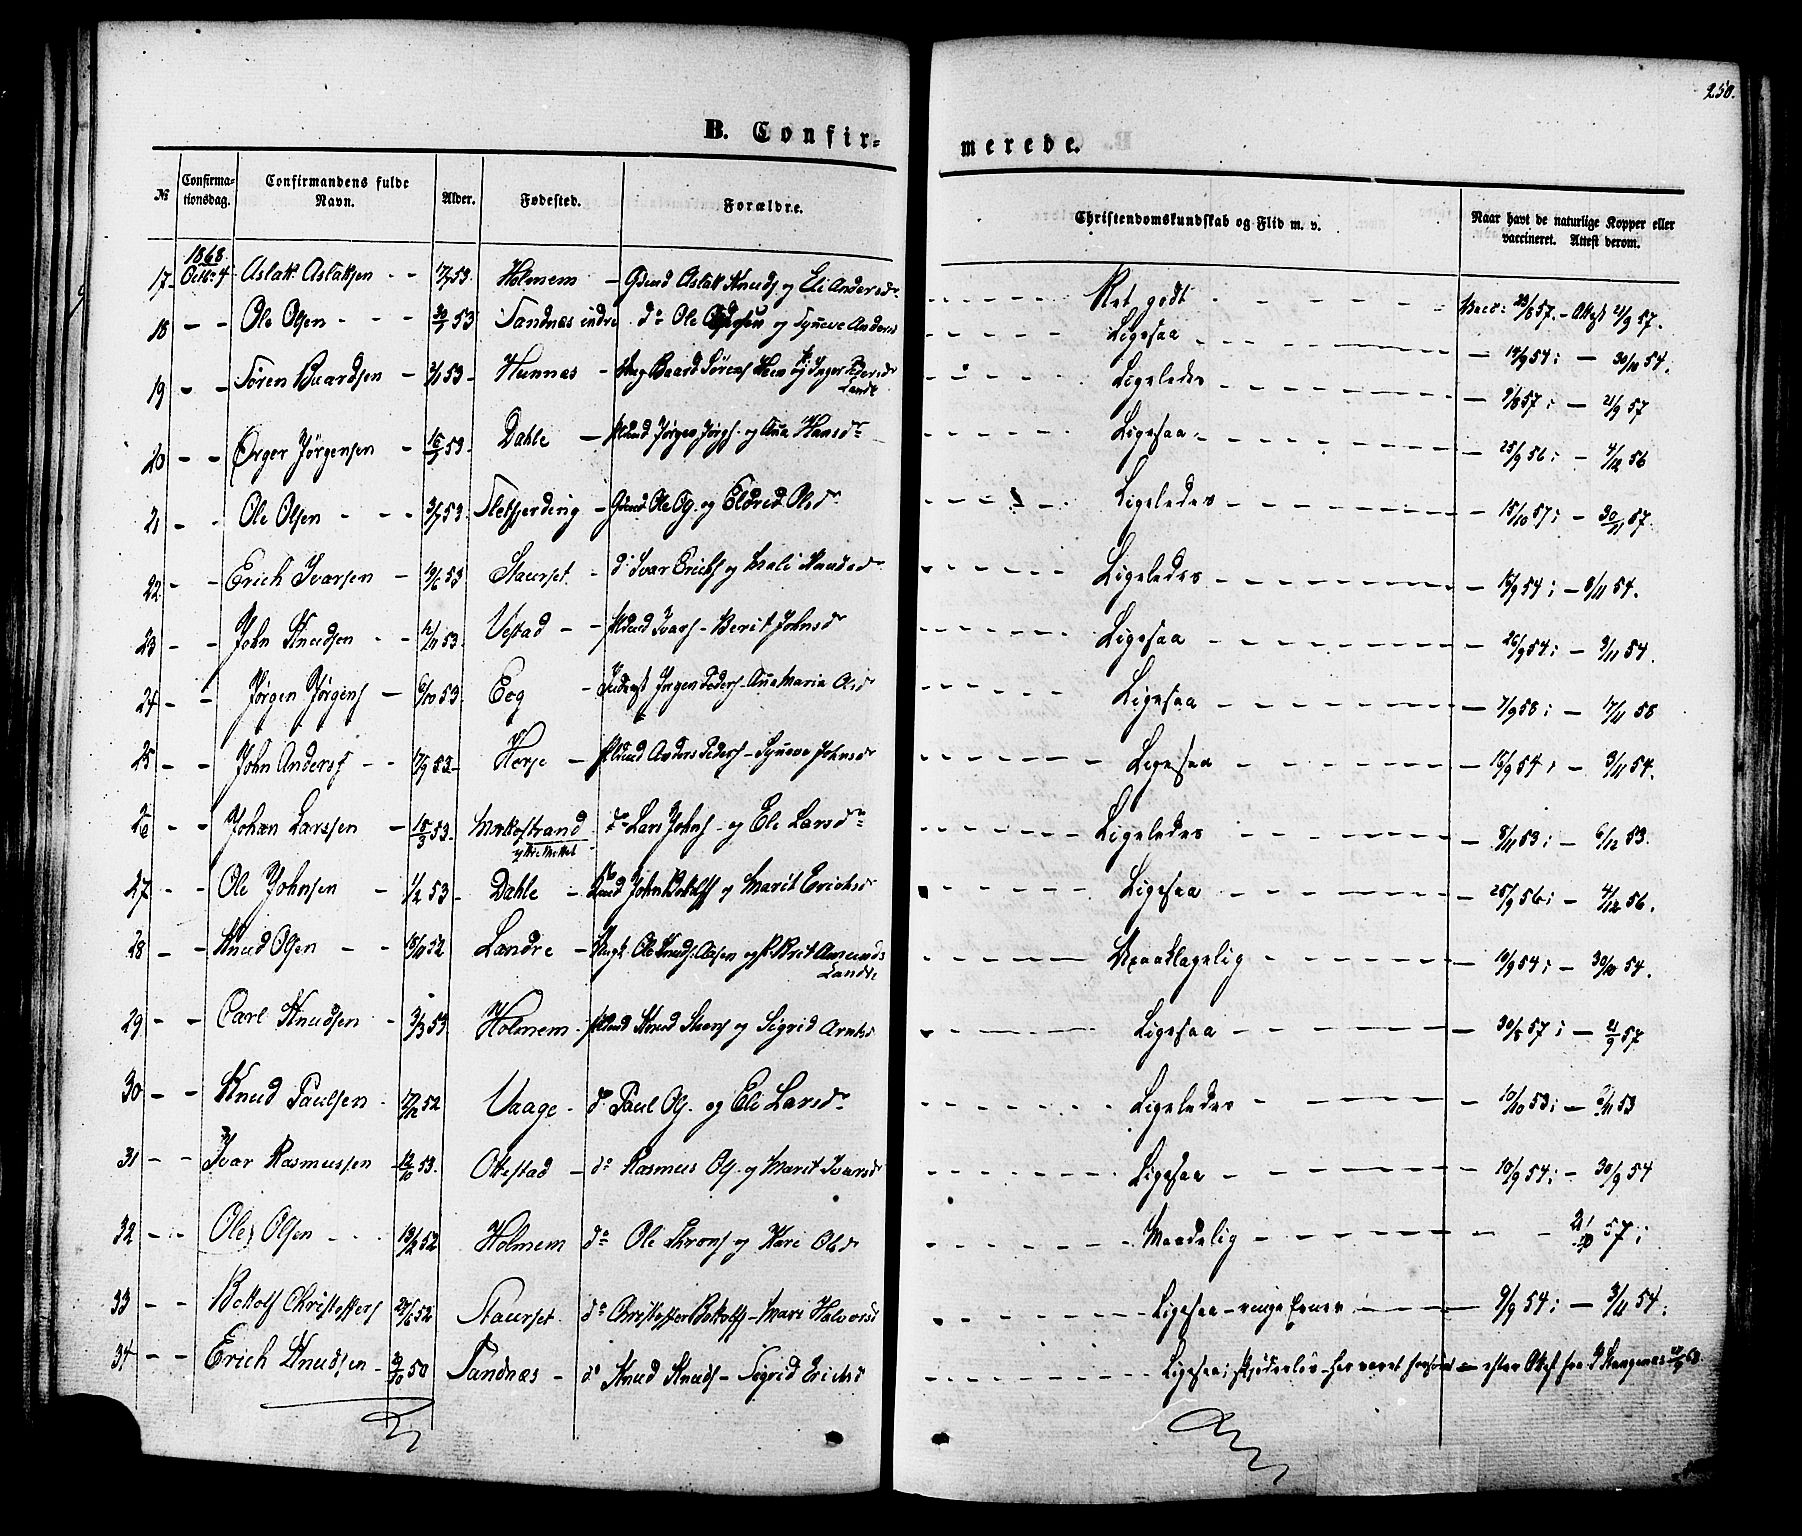 250.
B. Confir-
merede.
№ Confirma-tionsdag. Confirmandens fulde Navn. Alder. Fødested. Forældre. Christendomskundskab og Flid m. v. Naar havt de naturlige Kopper eller vaccineret. Attest derom.
1868
17 Octbr 4 Aslak Aslaksen - - 17/7 53 Holmem - Gdmd Aslak Knuds og Eli Andersdr Ret godt Vacc: 29/8 57. - Attest 21/9 57.
18 - - Ole Olsen - - - 30/7 53 Sandnæs indre do Ole og Synneve Anders Ligesaa - 14/9 54; - 30/10 54.
19 - - Søren Baardsen 2/7 53 - Hunnæs - Baard Sørens og Inger Ligeledes - 9/8 57; - 21/9 57
20 - - Ørger Jørgensen - 15/5 53. Dahle - Pldmd Jørgen Jørgs. og Ana Hansdr Ligesaa - 25/9 56; - 4/12 56
21 - - Ole Olsen - - - 3/7 53. Sletfjerding - Gdmd Ole Ols. og Eldrid Olsdr Ligeledes - 15/10 57; - 30/11 57.
22 - - Erich Ivarsen - 19/6 53 Staurset - do Ivar Erichs og Mali Knudsd Ligeledes - 15/9 54; - 3/11 54.
23 - - John Knudsen - - 12/11 53. Vestad - - Pldmd Ivars - Berit Johnsd Ligesaa - 26/9 54; - 3/11 54.
24 - - Jørgen Jørgens - 6/10 53 Eeg - Inderst Jørgen Peders - Ane Maria Olsd Ligesaa - 7/9 58; - 17/11 58
25 - - John Anders - - 17/9 53 - Herje - Pldmd Anders Peders - Synneve Johnsd Ligesaa - 16/9 54; - 3/11 54.
26 - - Johan Larssen - 15/3 53. Mækostrand do Lars Johns - og Eli Larsdr Ligeledes - 8/11 53; - 6/12 53.
27 - - Ole Johnsen - 1/2 53 - Dahle - John Botolfs og Marit Erichsd Ligesaa - 25/9 56; - 4/12 56.
28 - - Knud Olsen - - 18/11 52 Landre - Ole Knuds. Aasen og Brit Amunds Landre Upaaklagelig - 10/9 54; - 30/10 54.
29 - - Carl Knudsen - 3/3 53 Holmem - Pldmd Knud og Sigrid Arnesd Ligesaa - 30/8 57; - 21/9 57
30 - - Knud Paulsen - 17/12 52 Vaage - do Paul Ols. og Eli Larsdr Ligeledes - 10/10 53; - 3/11 53
31 - - Ivar Rasmussen - 12/10 53. Okestad - do Rasmus Ols. og Marit Ivarsd Ligesaa - 10/9 54; - 30/9 54
32 - - Ole Olsen - - - 19/12 52 Holmem do Ole og Kari Olsd Maadelig - - 21/10 57;
33 - - Botolf Christoffers 24/6 52 Staurset. do Christoffer Botolfs - Mari Halvorsd Ligesaa - ringe Evner - 9/9 54; - 3/11 54.
34 - - Erich Knudsen - 50 Sandnæs - do Knud Knuds - Sigrid Erichsd Ligesaa; - efter Attest fra